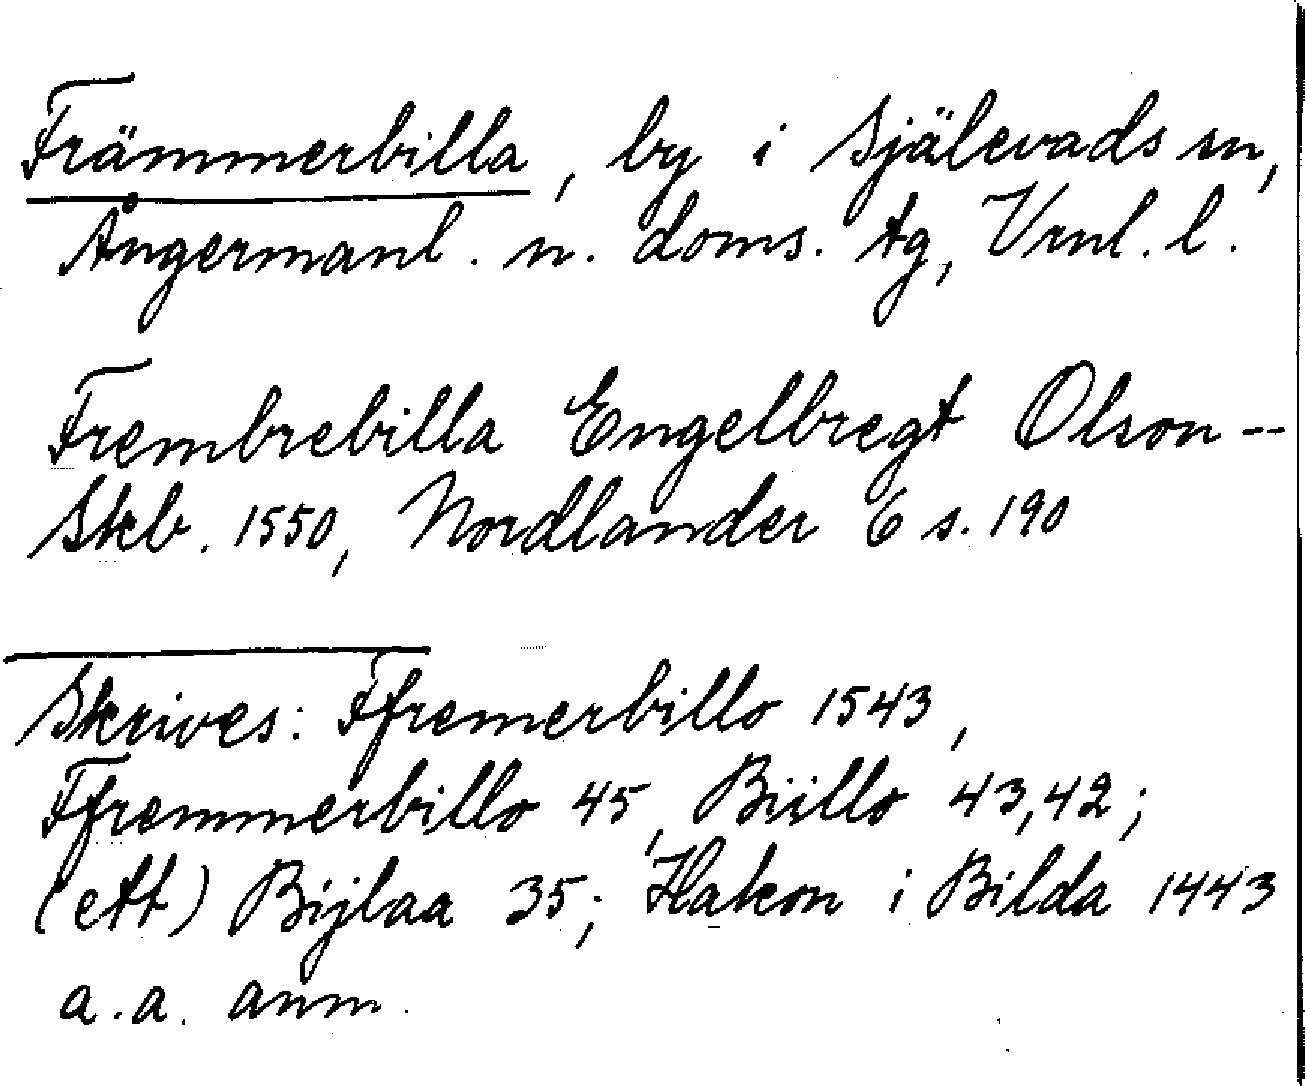 Främmerbilla, by i Själevads sn,
Ångermanl. n. doms. tg, Vrnl. l.
Frembrebilla Engelbregt Olson --
Skb. 1550, Nordlander 6 s. 190
Skrives: Ffremerbillo 1543,
Ffremmerbillo 45, Biillo 43,42;
(ett) Bijlaa 35; Hakon i Bilda 1443
a.a. anm.